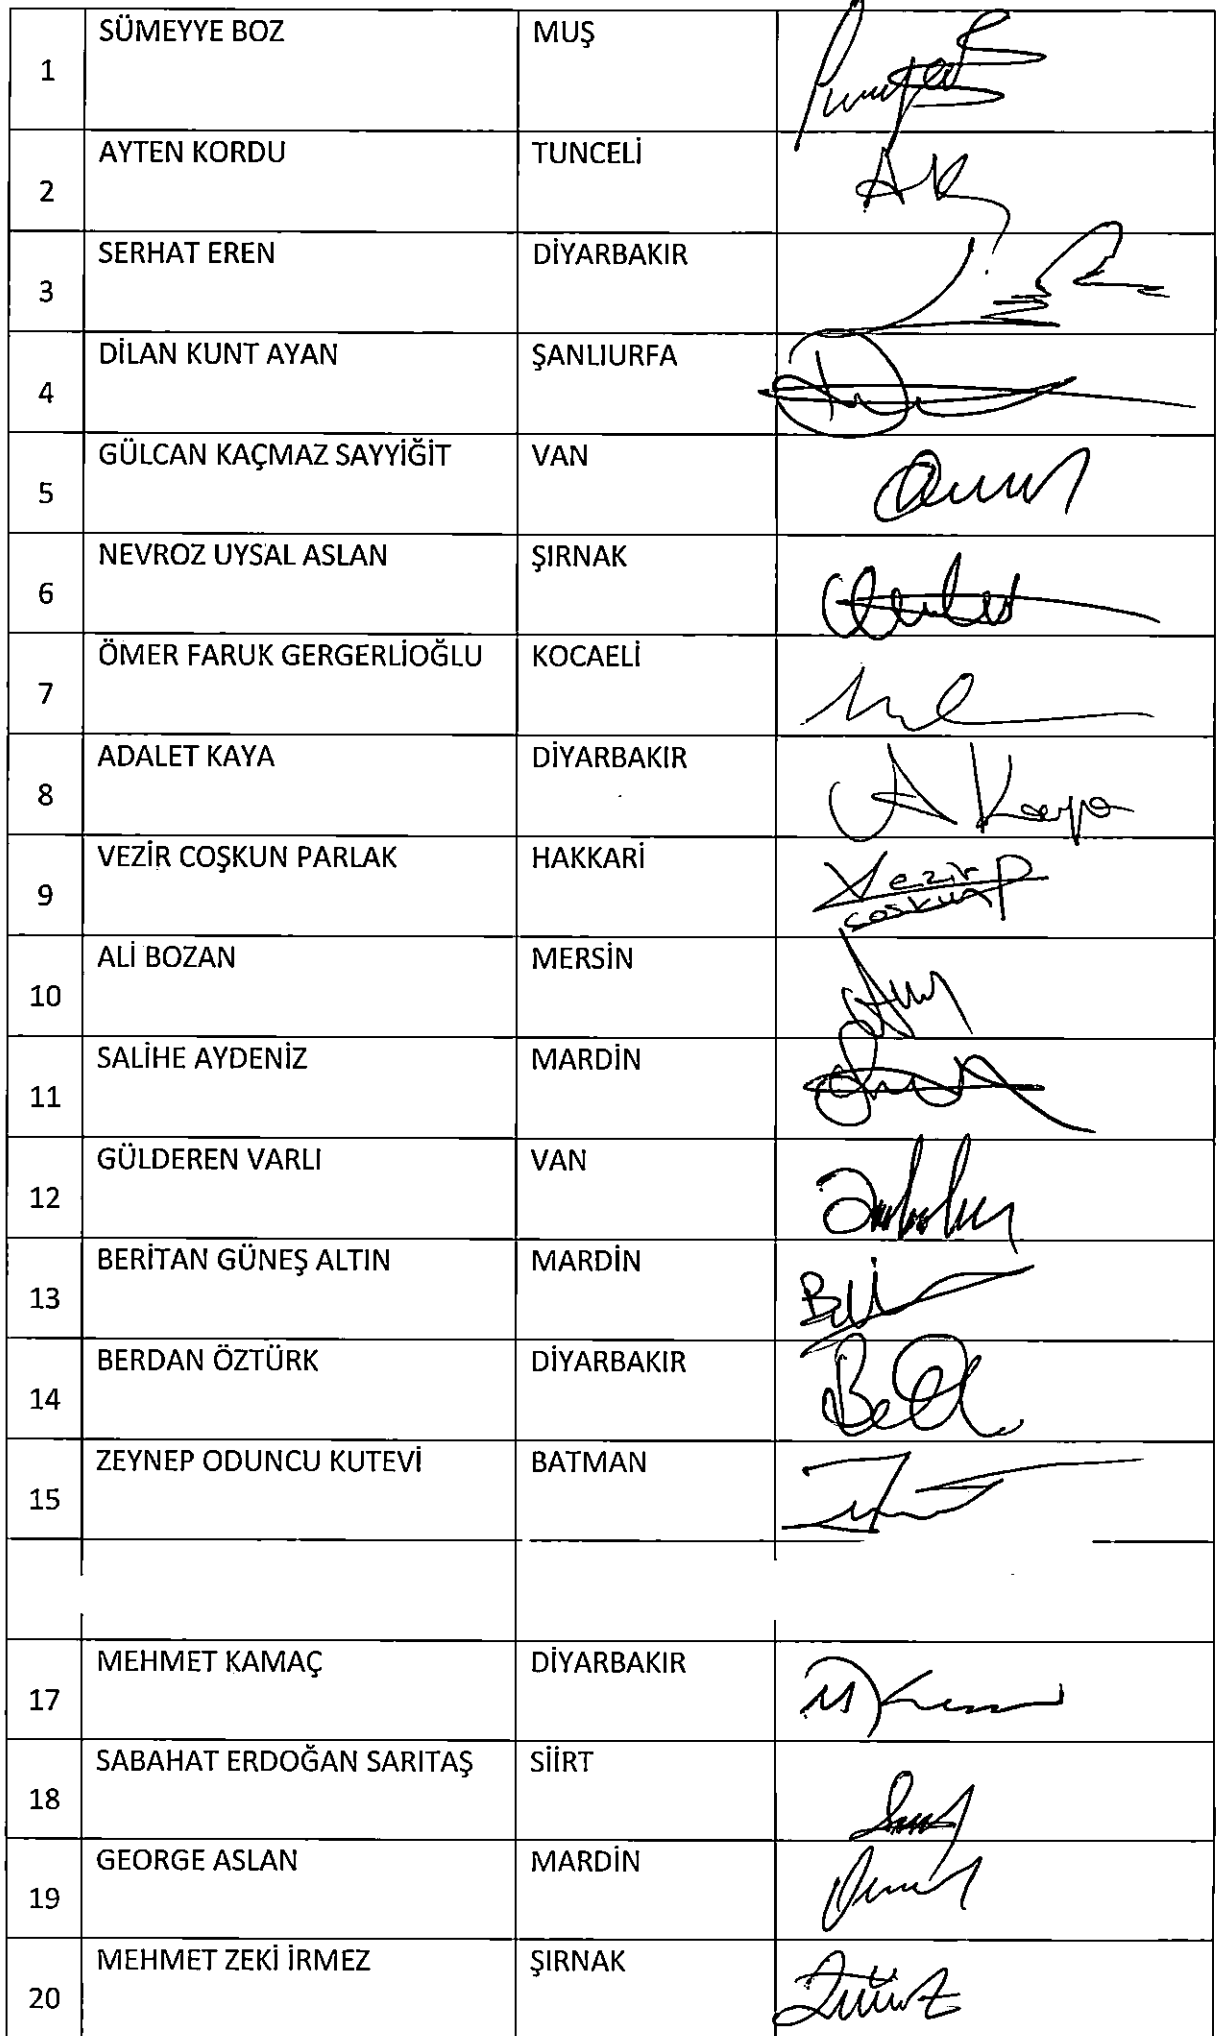 1 SÜMEYYE BOZ MUŞ
2 AYTEN KORDU TUNCELİ AK
3 SERHAT EREN DİYARBAKIR
4 DİLAN KUNT AYAN ŞANLIURFA
5 GÜLCAN KAÇMAZ SAYYİĞİT VAN
6 NEVROZ UYSAL ASLAN ŞIRNAK
7 ÖMER FARUK GERGERLİOĞLU KOCAELİ
8 ADALET KAYA DİYARBAKIR A Kaya
9 VEZİR COŞKUN PARLAK HAKKARİ Vezir coşkun P
10 ALİ BOZAN MERSİN
11 SALİHE AYDENİZ MARDİN
12 GÜLDEREN VARLI VAN
13 BERİTAN GÜNEŞ ALTIN MARDİN
14 BERDAN ÖZTÜRK DİYARBAKIR
15 ZEYNEP ODUNCU KUTEVİ BATMAN
17 MEHMET KAMAÇ DİYARBAKIR
18 SABAHAT ERDOĞAN SARITAŞ SİİRT
19 GEORGE ASLAN MARDİN
20 MEHMET ZEKİ İRMEZ ŞIRNAK